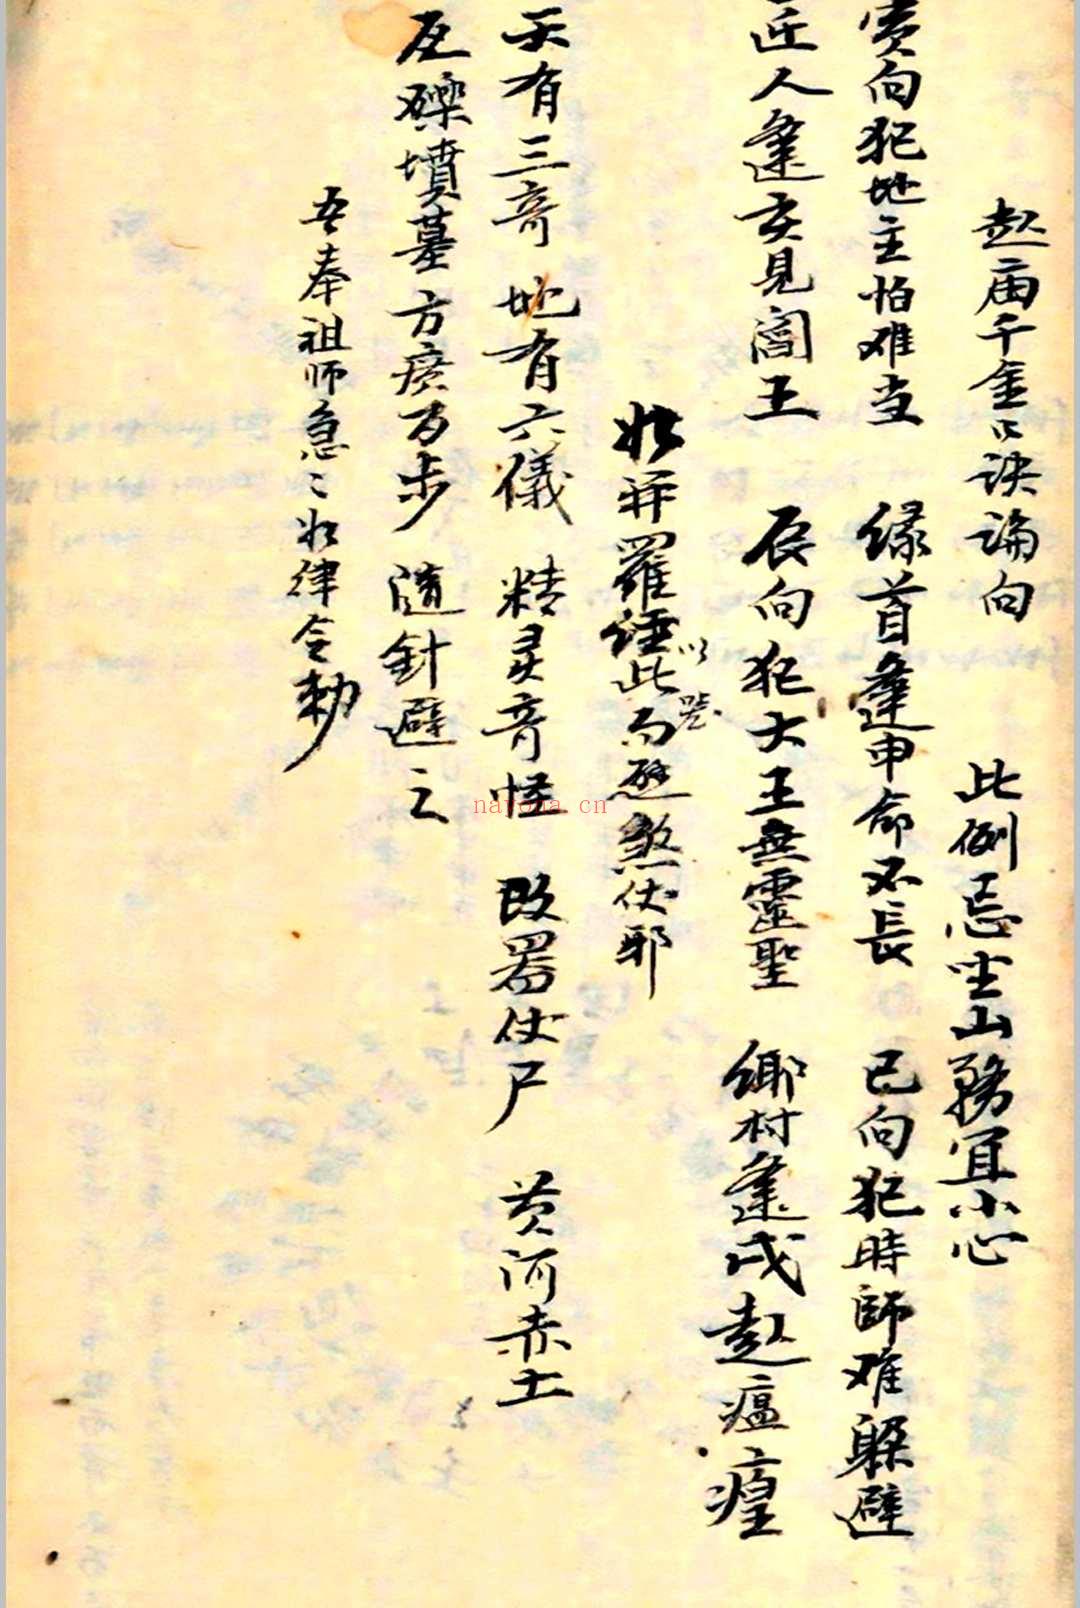 起庙千金口诀論向 此例忌坐山務宜小心
寅向犯地主怕难当 缘首逢申命不長 巳向犯時師难躲避
匠人逢亥見閻王 辰向犯大王無靈聖 鄉村逢戌起瘟瘟
羅經以此而避煞伏邪
天有三奇 地有六儀 精灵奇怪 故器伏尸 黄河赤土
瓦礫墳墓 方廣万步 随針避之
吾奉祖師急〻如律令勅
nayona.cn